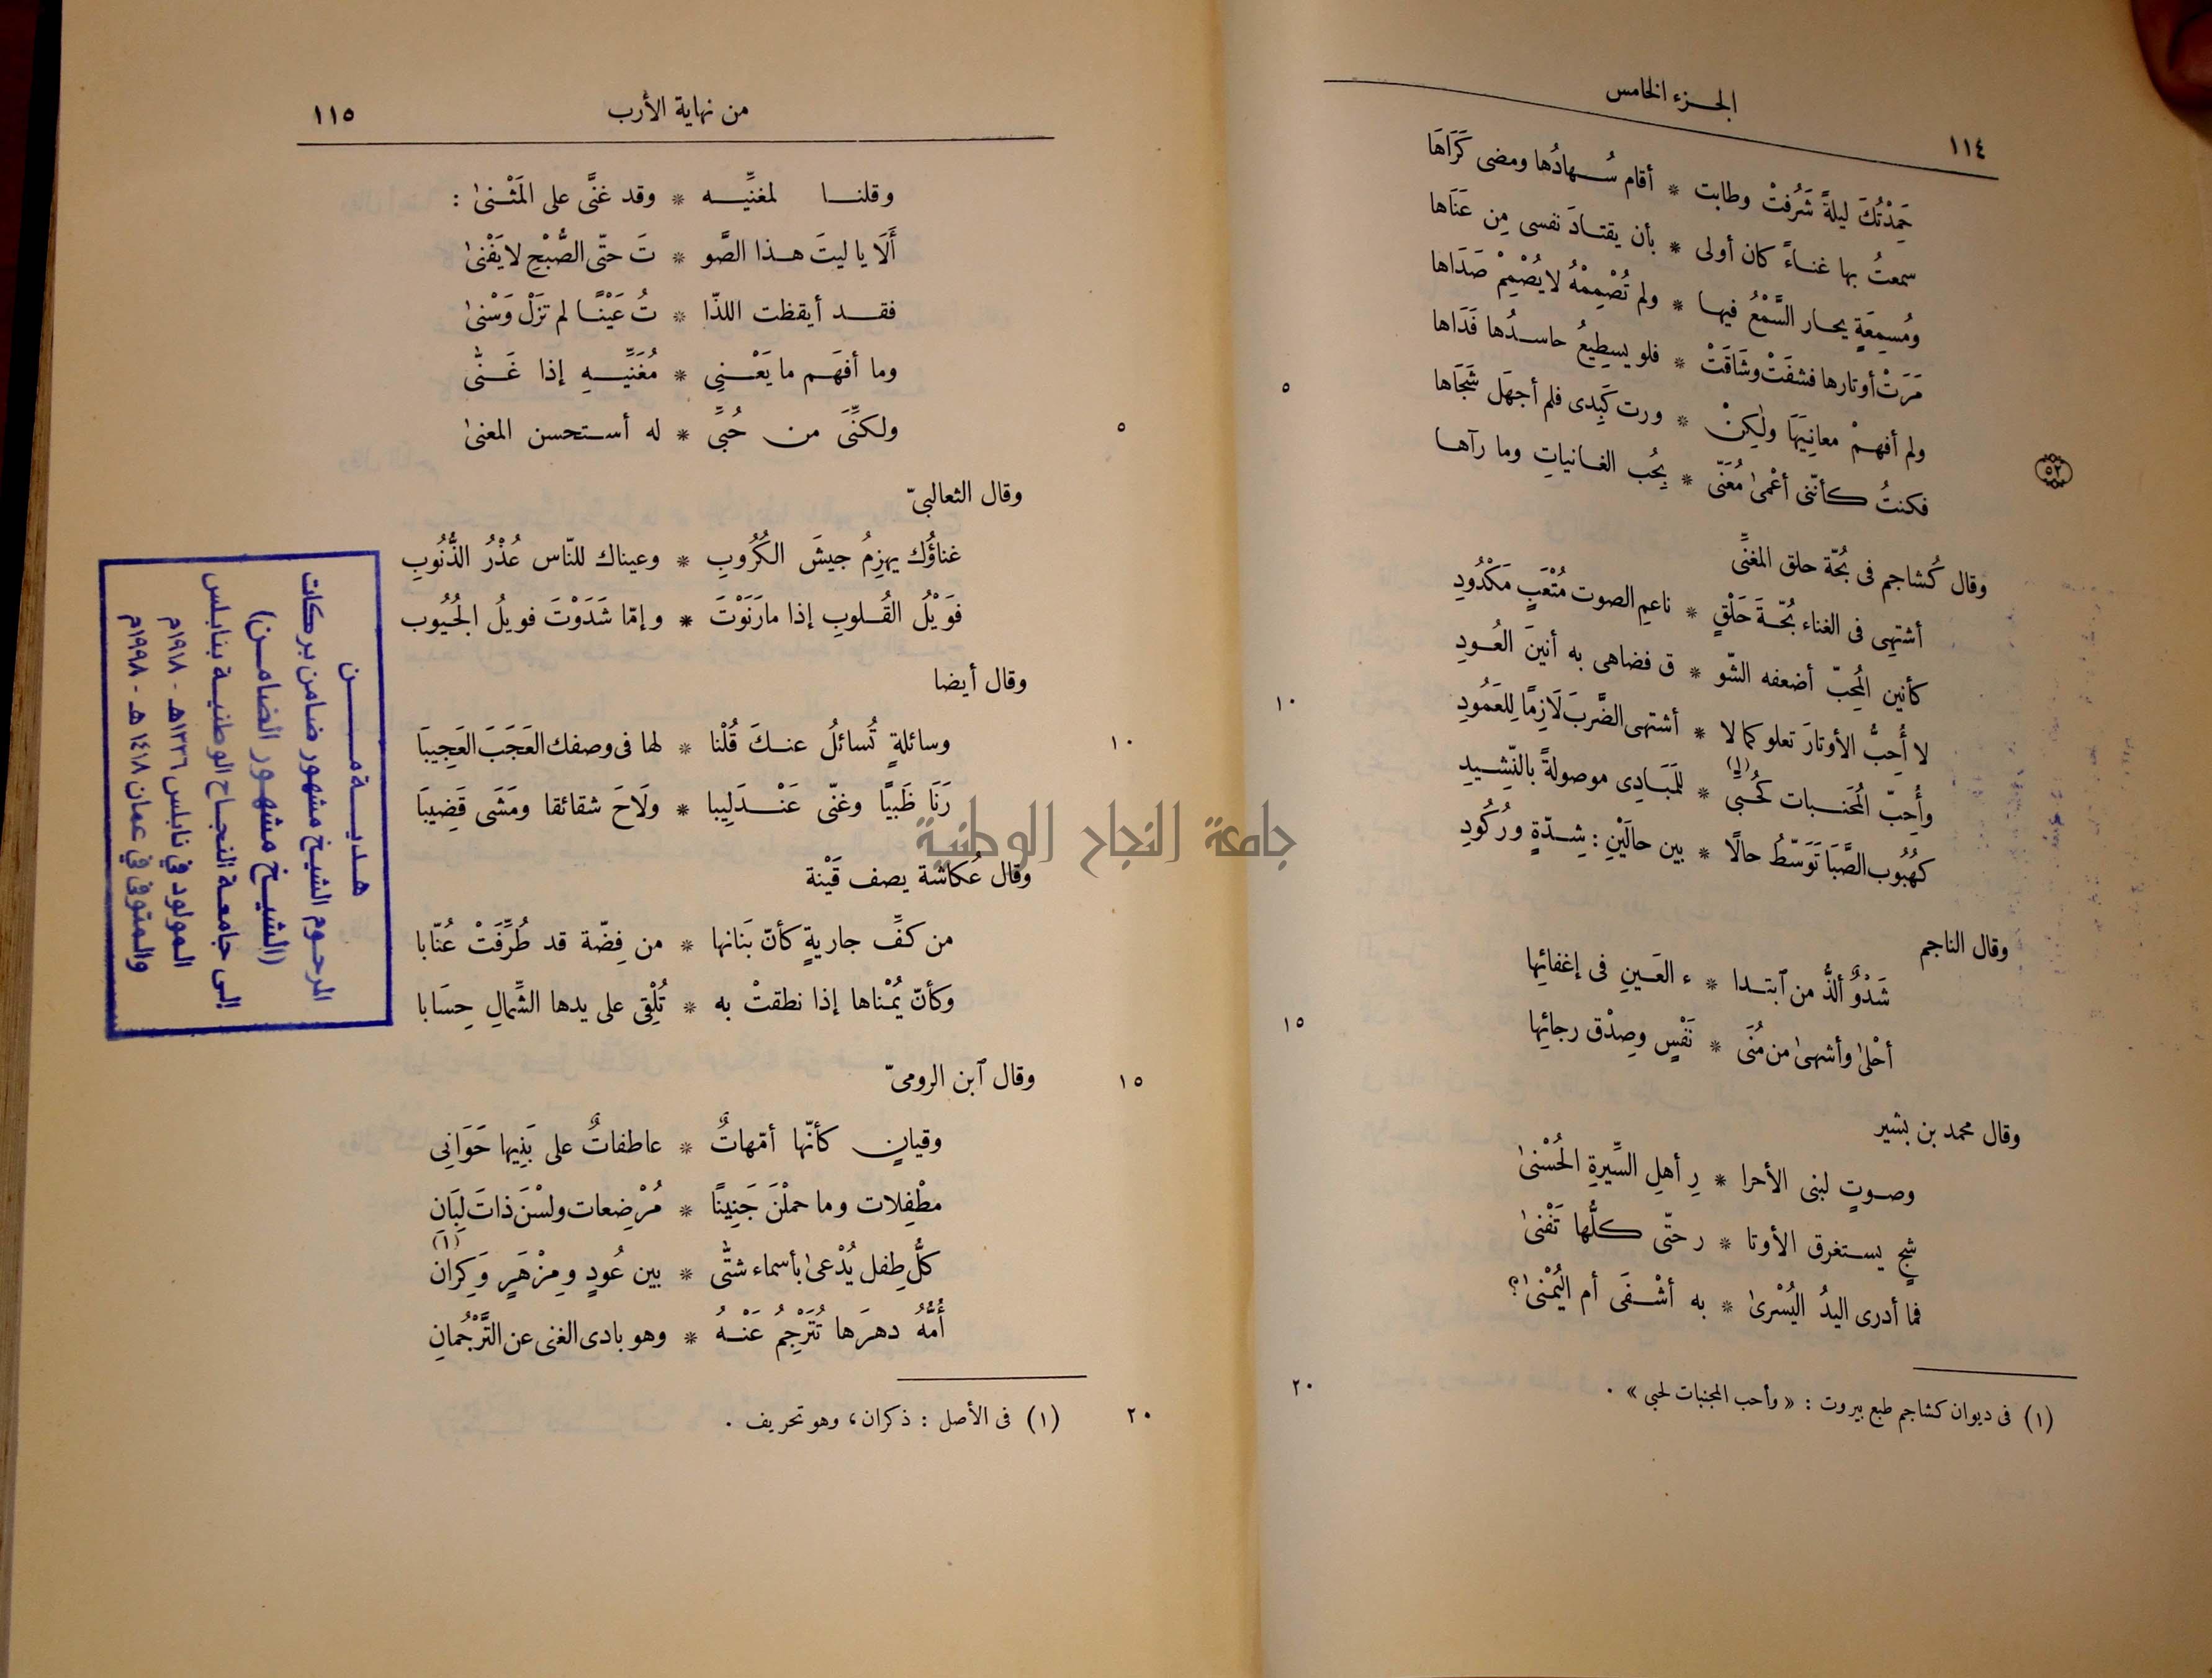 الجزء الخامس
١١٤
حَمِدْتُكَ ليلةً شَرُفتْ وطابت * أقام سُهادُها ومضى كَرَاهَا
سمعتُ بها غناءً كان أولى * بأن يقتادَ نفسى مِن عَنَاها
ومُسمِعَةٍ يحار السَّمْعُ فيها * ولم تُصْمِمْهُ لا يُصْمِمْ صَدَاها
مَرَتْ أوتارها فشفَتْ وشَاقَتْ * فلو يسطِيعُ حاسدُها فَدَاها
٥
ولم أفهمْ معانِيهَا ولٰكِنْ * ورت كَبِدى فلم أجهَل شَجَاها
فكنتُ كأنّنى أعْمىٰ مُعَنًّى * بِحُب الغانياتِ وما رآها
٥٢
وقال كُشاجم فى بُحّة حلق المغنِّى
أشتهِى فى الغناء بُحّةَ حَلْقٍ * ناعمِ الصوت مُتْعَبٍ مَكْدُودِ
كأنين المُحِبّ أضعفه الشّو * ق فضاهى به أنينَ العُودِ
١٠
لا أُحِبُّ الأوتارَ تعلو كما لا * أشتهى الضَّربَ لَازِمًا لِلعَمُودِ
وأُحِبّ المُجَنبات كَحُبّى (١) * للمَبَادِى موصولةً بالنّشِيدِ
كهُبُوب الصَّبَا تَوَسّطُ حالًا * بين حالَيْنِ : شِدّةٍ ورُكُودِ
وقال الناجم
شَدْوٌ ألذُّ من ٱبتدا * ء العَينِ فى إغفائِها
١٥
أحْلىٰ وأشهىٰ من مُنَى * نَفْسٍ وصِدْق رجائِها
وقال محمد بن بشير
وصوتٍ لبنى الأحرا * رِ أهلِ السِّيرةِ الحُسْنىٰ
شجٍ يستغرق الأوتا * ر حتّى كلُّها تَفْنىٰ
فما أدرى اليدُ اليُسْرىٰ * به أشْفَى أم اليُمْنىٰ؟
٢٠
(١) فى ديوان كشاجم طبع بيروت : « وأحب المجنبات لحبى » .
من نهاية الأرب
١١٥
وقلنا لمغنِّيه * وقد غنَّى على المَثْنىٰ :
أَلَا يا ليتَ هذا الصَّو * تَ حتّى الصُّبْحِ لا يَفْنىٰ
فقد أيقظت اللذّا * تُ عَيْنًا لم تَزَلْ وَسْنىٰ
وما أفهَم ما يَعْنِى * مُغَنِّيهِ إذا غَنّٰى
٥
ولكنِّىَ من حُبِّى * له أستحسن المعنىٰ
وقال الثعالبىّ
غناؤُك يهزِمُ جيشَ الكُرُوبِ * وعيناك للنّاس عُذْرُ الذُّنُوبِ
فوَيْلُ القُلوبِ إذا ما رَنَوْتَ * وإمّا شَدَوْتَ فويلُ الجُيُوب
وقال أيضا
١٠
وسائلةٍ تُسائلُ عنكَ قُلْنا * لها فى وصفك العَجَبَ العَجِيبَا
رَنَا ظَبيًا وغنّى عَنْدَلِيبا * ولَاحَ شقائقا ومَشَى قَضِيبَا
وقال عُكاشة يصف قَيْنة
من كفِّ جاريةٍ كأنّ بَنانها * من فِضّة قد طُرِّفَتْ عُنّابا
وكأنّ يُمْناها إذا نطقتْ به * تُلْقِى على يدها الشِّمالِ حِسَابا
١٥
وقال ٱبن الرومىّ
وقيانٍ كأنّها أمّهاتٌ * عاطفاتٌ على بَنِيها حَوَانِى
مطْفِلات وما حملْنَ جَنِينًا * مُرْضِعات ولسْنَ ذاتَ لِبَانِ
كلُّ طِفل يُدْعىٰ بأسماء شتّٰى * بين عُودٍ ومِزْهَرٍ وَكِرَان (١)
أُمُّهُ دهرَها تُتَرْجِمُ عَنْهُ * وهو بادى الغنى عن التَّرْجُمانِ
٢٠
(١) فى الأصل : ذكران ، وهو تحريف .
هدية من
المرحوم الشيخ مشهور ضامن بركات
(الشيخ مشهور الضامن)
إلى جامعة النجاح الوطنية بنابلس
المولود في نابلس ١٣٣٦هـ - ١٩١٨م
والمتوفى في عمان ١٤١٨هـ - ١٩٩٨م
جامعة النجاح الوطنية